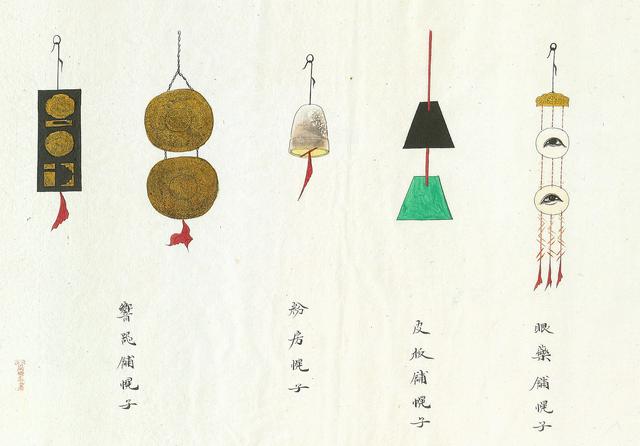 眼藥舖幌子
皮板舖幌子
粉房幌子
響 舖幌子